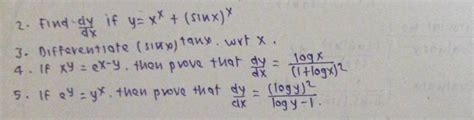 2. Find dy/dx if y = x^x + (sinx)^x
3. Differentiate (sinx)^tanx. wrt x.
4. If xy = e^x-y. then prove that dy/dx = logx/(1+logx)^2
5. If e^y = y^x. then prove that dy/dx = (logy)^2/logy-1.